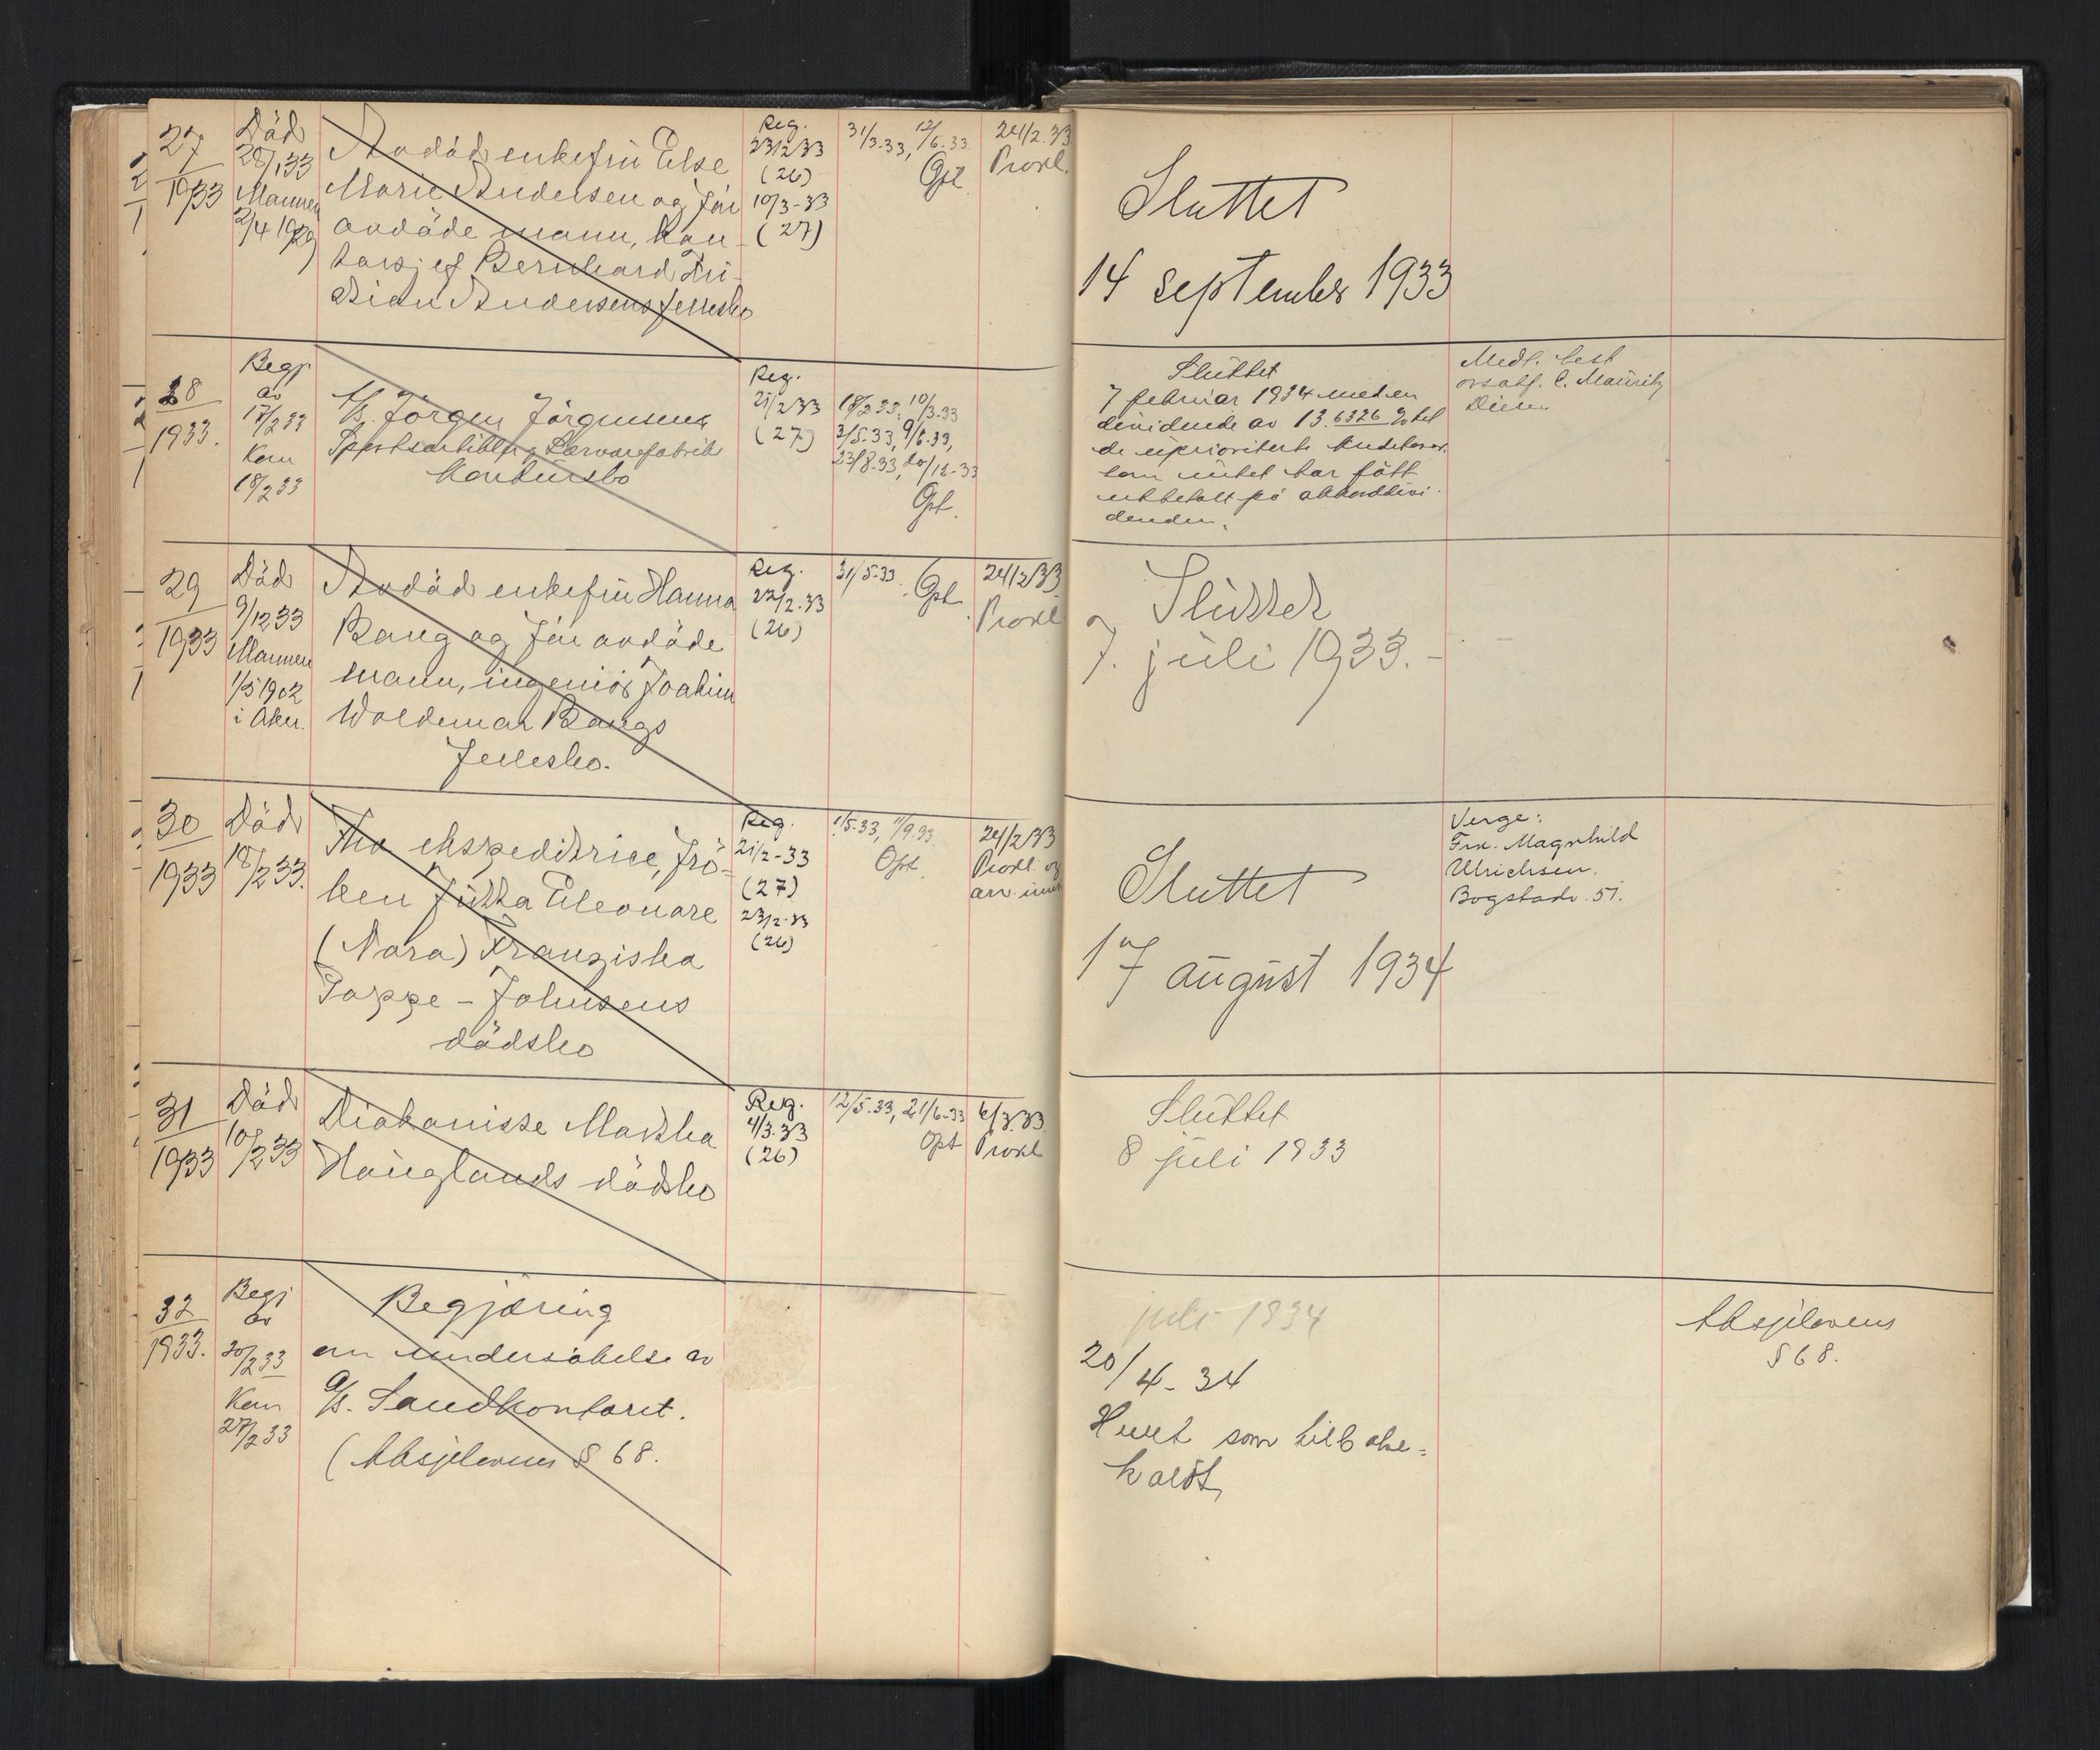 27
1933
Död
28/1 33
Mannen
2/4 1929
Avdöd enkefru Else
Marie Andersen og før
avdöde mann, kon-
torsjef Bernhard Kri-
stian Andersens fellesbo
Reg.
23/2 33
(26)
10/3-33
(27)
31/3.33, 12/6.33
Gpt
24/2.33
Prokl.
Sluttet
14 september 1933
28
1933.
Begj
av
17/2 33
Kom
18/2 33
A/s. Jörgen Jörgensens
Sportsartikler og Lærvarefabriks
konkursbo
Reg.
21/2 33
(27)
18/2 33, 10/3.33
3/5.33, 9/6.33,
23/8.33, 20/12-33
Gpt.
Sluttet
7 februar 1934 med en
dividende av 13.6326 % til
de uprioriterte kreditorer
som intet har fått
utbetalt på akkorddivi-
denden.
Medl. best
orsakf. C. Mauritz
29
1933
Död
9/12 33
Mannen
1/5 1902
i Aker.
Avdöd enkefru Hanna
Bang og før avdöde
mann, ingeniör Joakim
Woldemar Bangs
fellesbo.
Reg.
22/2.33
(26)
31/5.33. Gpt.
24/2 33
Prokl
Sluttet
7. juli 1933.-
30
1933
Död
18/2 33.
Fhv ekspeditrice, frö-
ken Jutta Eleonore
(Nora) Franziska
Poppe-Johnsens
dödsbo
Reg.
21/2-33
(27)
23/2.33
(26)
1/5.33, 11/9.33
Opt.
24/2 33
Prokl og
arv. innk
Sluttet
17 august 1934
Verge:
Frk. Magnhild
Ulrichsen.
Bogstadv. 51.
31
1933
Död
10/2 33
Diakonisse Martha
Hauglands dödsbo
Reg.
4/3.33
(26)
12/5.33, 21/6-33
Opt
6/3.33.
Prokl
Sluttet
8 juli 1933
32
1933.
Begj
av
20/2 33
Kom
27/2 33
Begjæring
om undersökelse av
A/s. Sandkontoret.
(Aksjelovens § 68.
juli 1934
20/4-34
Hevet som tilbake-
kaldt,
Aksjelovens
§ 68.